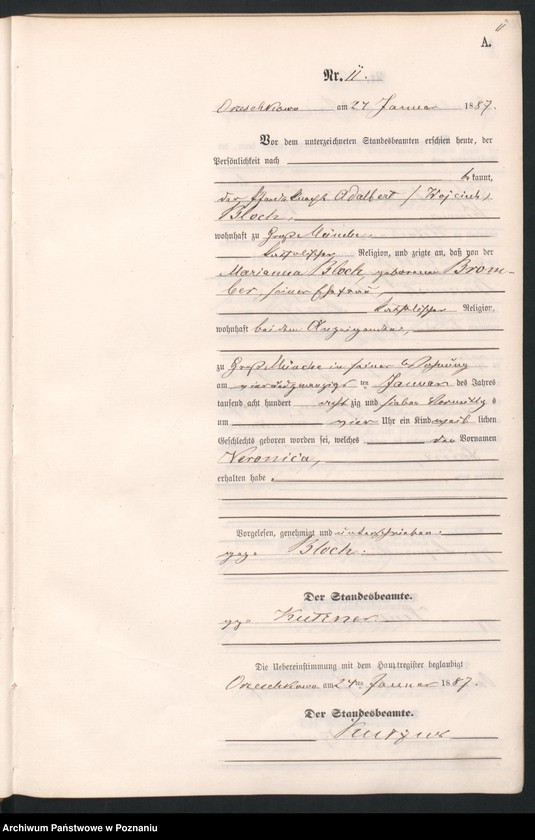 11
A.
Nr. 11.
Orzeschkowo am 24 Januar 1887.
Vor dem unterzeichneten Standesbeamten erschien heute, der
Persönlichkeit nach
bekannt,
der Pferdeknecht Adalbert /Wojciech/
Bloch,
wohnhaft zu Groß Münche,
katholischer Religion, und zeigte an, daß von der
Marianna Bloch, geborenen Brom-
ber, seiner Ehefrau,
katholischer Religion,
wohnhaft bei dem Anzeigenden,
zu Groß Münche in seiner Wohnung
am vierundzwanzigsten Januar des Jahres
tausend acht hundert achtzig und sieben Vormittags
um vier Uhr ein Kind weiblichen
Geschlechts geboren worden sei, welches den Vornamen
Veronica,
erhalten habe.
Vorgelesen, genehmigt und unterschrieben.
gez. Bloch.
Der Standesbeamte.
gez. Kutzner
Die Uebereinstimmung mit dem Hauptregister beglaubigt
Orzeschkowo am 24ten Januar 1887.
Der Standesbeamte.
Kutzner
Archiwum Państwowe w Poznaniu